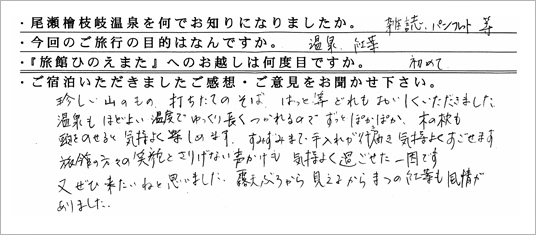 ・尾瀬檜枝岐温泉を何でお知りになりましたか。 雑誌、パンフレット 等
・今回のご旅行の目的はなんですか。 温泉、紅葉
・『旅館ひのえまた』へのお越しは何度目ですか。 初めて
・ご宿泊いただきましたご感想・ご意見をお聞かせ下さい。
珍しい山のもの、打ちたてのそば、はっと等どれもおいしくいただきました
温泉もほどよい温度でゆっくり長くつかれるのでずっとぽかぽか、木の枕も
頭をのせると気持よく楽しめます。すみずみまで手入れが行届き気持よくすごせます
旅館の方々の笑顔とさりげない声かけも気持よく過ごせた一因です
又ぜひ来たいねと思いました。露天ぶろから見えるからまつの紅葉も風情が
ありました。